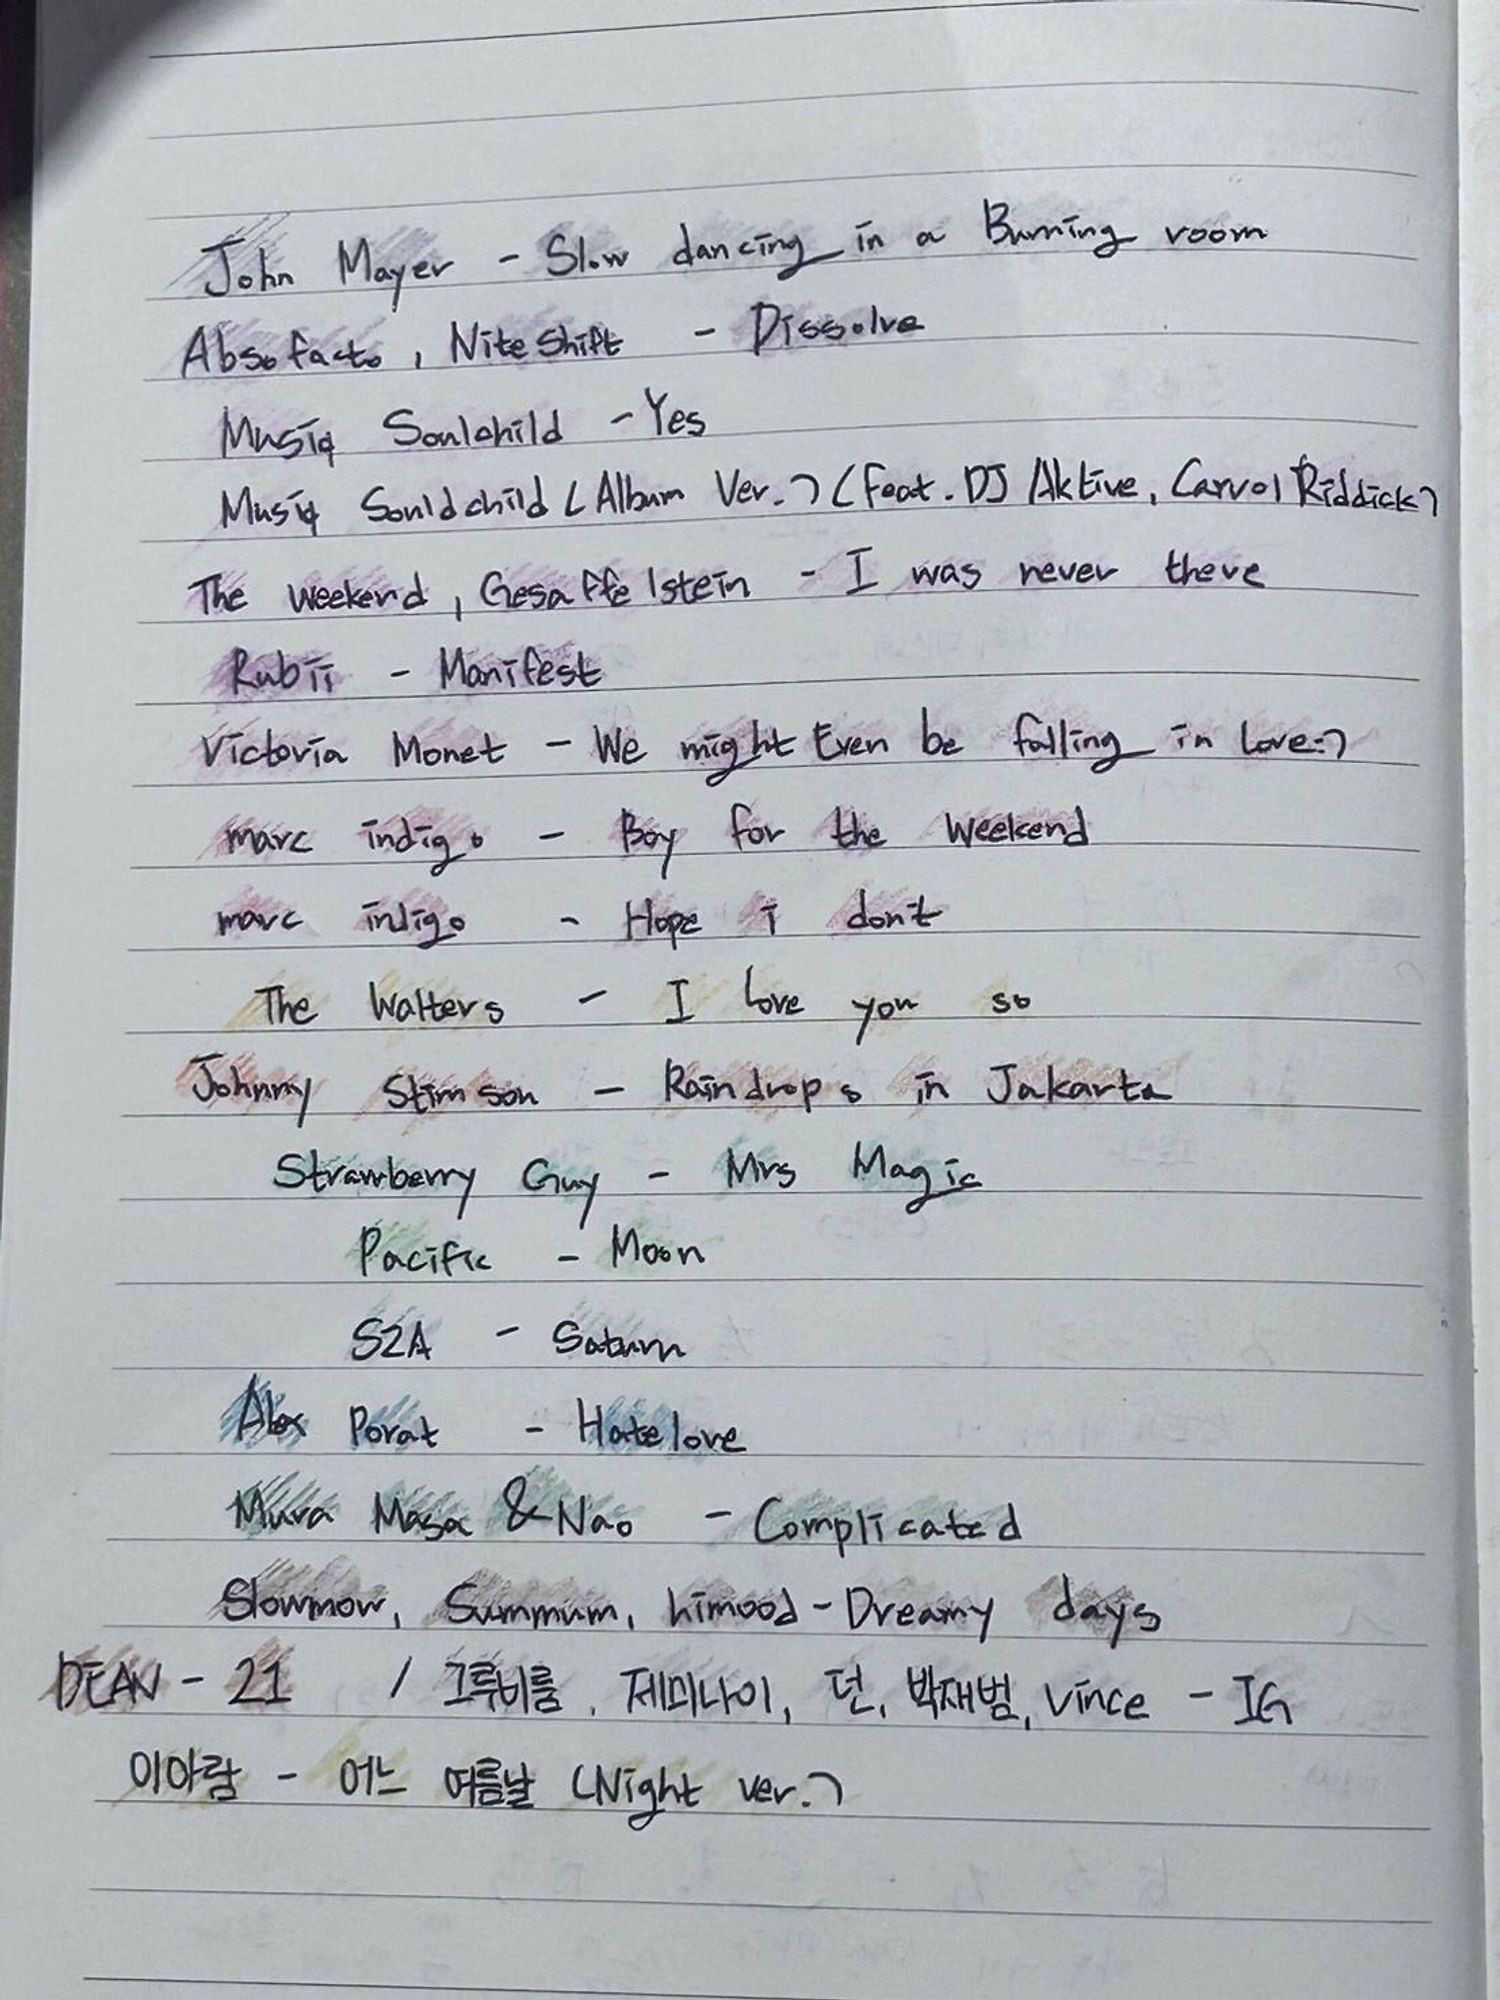 John Mayer - Slow dancing in a Burning room
Absofacto, Nite Shift - Dissolve
Musiq Soulchild - Yes
Musiq Souldchild (Album Ver.) (Feat. DJ Aktive, Carvol Riddick)
The weekend, Gesaffelstein - I was never there
Rubii - Manifest
Victoria Monet - We might Even be falling in love:)
marc indigo - Boy for the Weekend
marc indigo - Hope i don't
The Walters - I love you so
Johnny Stimson - Raindrops in Jakarta
Strawberry Guy - Mrs Magic
Pacific - Moon
SZA - Saturn
Alex Porat - Hatelove
Mura Masa & Nao - Complicated
Slowmow, Summum, himood - Dreamy days
DEAN - 21 / 그루비룸, 제미나이, 던, 박재범, Vince - IG
이아람 - 어느 여름날 (Night ver.)